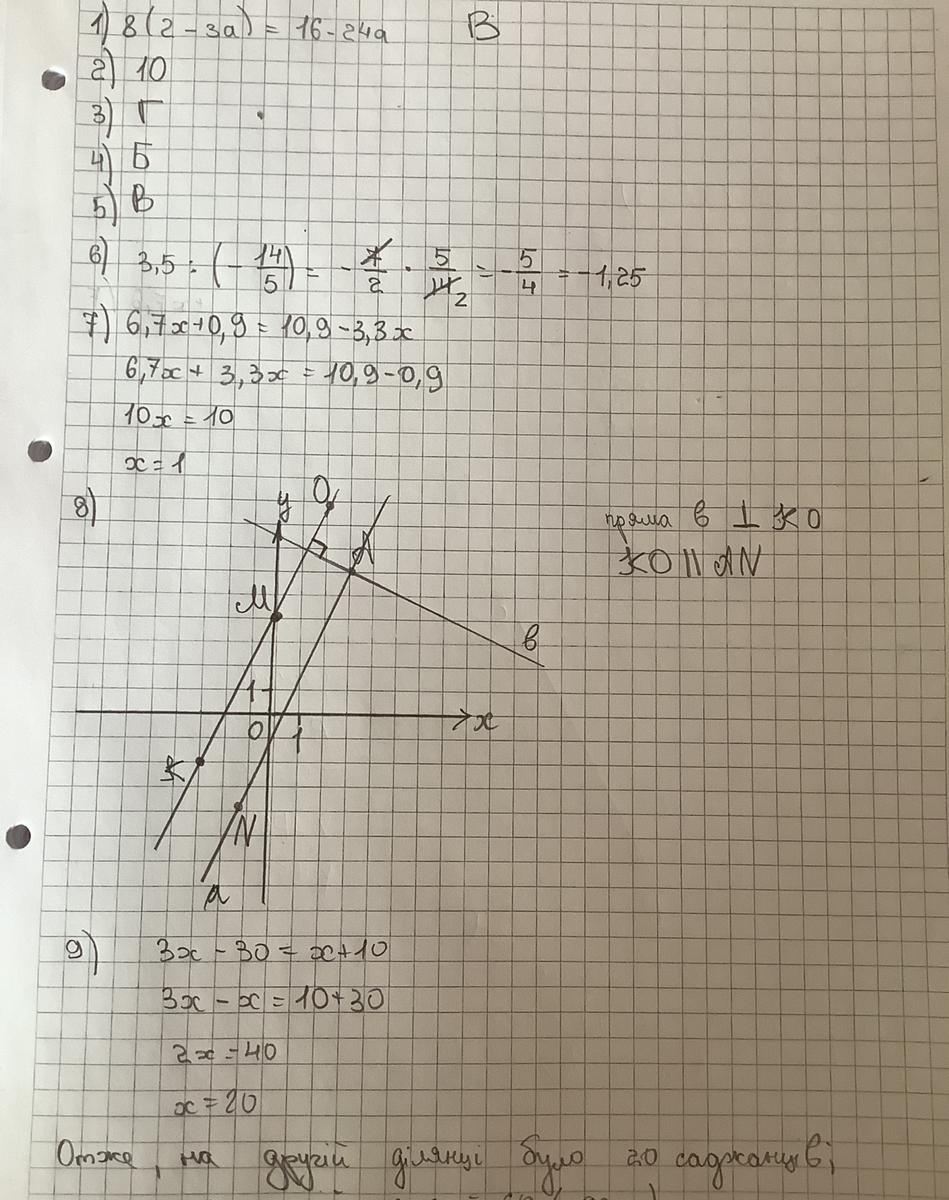 1) 8(2-3a) = 16-24a В
2) 10
3) Г
4) Б
5) В
6) 3,5 : (-14/5) = -7/2 · 5/14 2 = -5/4 = -1,25
7) 6,7x+0,9 = 10,9-3,3x
6,7x + 3,3x = 10,9-0,9
10x = 10
x = 1
8)
y O
пряма в ⊥ KO
A
KO || AN
M
в
1
0 1 x
K
N
a
9) 3x - 30 = x+10
3x - x = 10+30
2x = 40
x = 20
Отже, на другій ділянці було 20 саджанців;